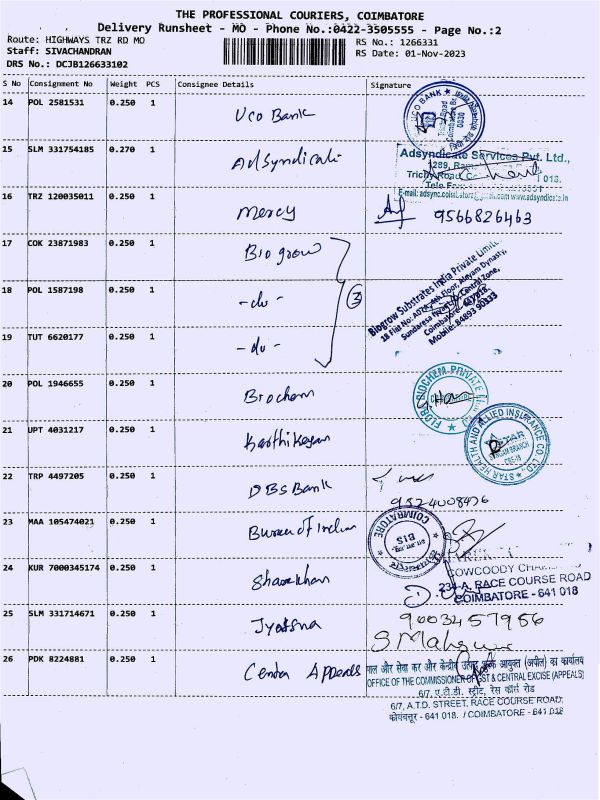 THE PROFESSIONAL COURIERS, COIMBATORE
Delivery Runsheet - MO - Phone No.:0422-3505555 - Page No.:2
Route: HIGHWAYS TRZ RD MO
RS No.: 1266331
Staff: SIVACHANDRAN
RS Date: 01-Nov-2023
DRS No.: DCJB126633102
S No Consignment No Weight PCS Consignee Details Signature
14 POL 2581531 0.250 1 Uco Bank
UCO BANK
15 SLM 331754185 0.270 1 Adsyndicate
Adsyndicate Services Pvt. Ltd.,
1289,
Trichy Road,
E-mail: www.adsyndicate.in
16 TRZ 120035011 0.250 1 Mercy
9566826463
17 COK 23871983 0.250 1 Biogrow
18 POL 1587198 0.250 1 -do- 3
Biogrow Substrates India Private Limited
19 TUT 6620177 0.250 1 -do-
20 POL 1946655 0.250 1 Brochem
21 UPT 4031217 0.250 1 Karthikeyan
STAR HEALTH AND ALLIED INSURANCE CO. LTD.
22 TRP 4497205 0.250 1 DBS Bank
23 MAA 105474021 0.250 1 Bureau of Indian
COIMBATORE
BIS
24 KUR 7000345174 0.250 1 Sharekhan
COWCOODY
234-A, RACE COURSE ROAD
COIMBATORE - 641 018
25 SLM 331714671 0.250 1 Jyotsna
9003457956
26 PDK 8224881 0.250 1 Center Appeals
माल और सेवा कर और केन्द्रीय उत्पाद शुल्क आयुक्त (अपील) का कार्यालय
OFFICE OF THE COMMISSIONER OF GST & CENTRAL EXCISE (APPEALS)
6/7, ए.टी.डी. स्ट्रीट, रेस कोर्स रोड
6/7, A.T.D. STREET, RACE COURSE ROAD,
कोयंबत्तूर - 641 018. / COIMBATORE - 641 018